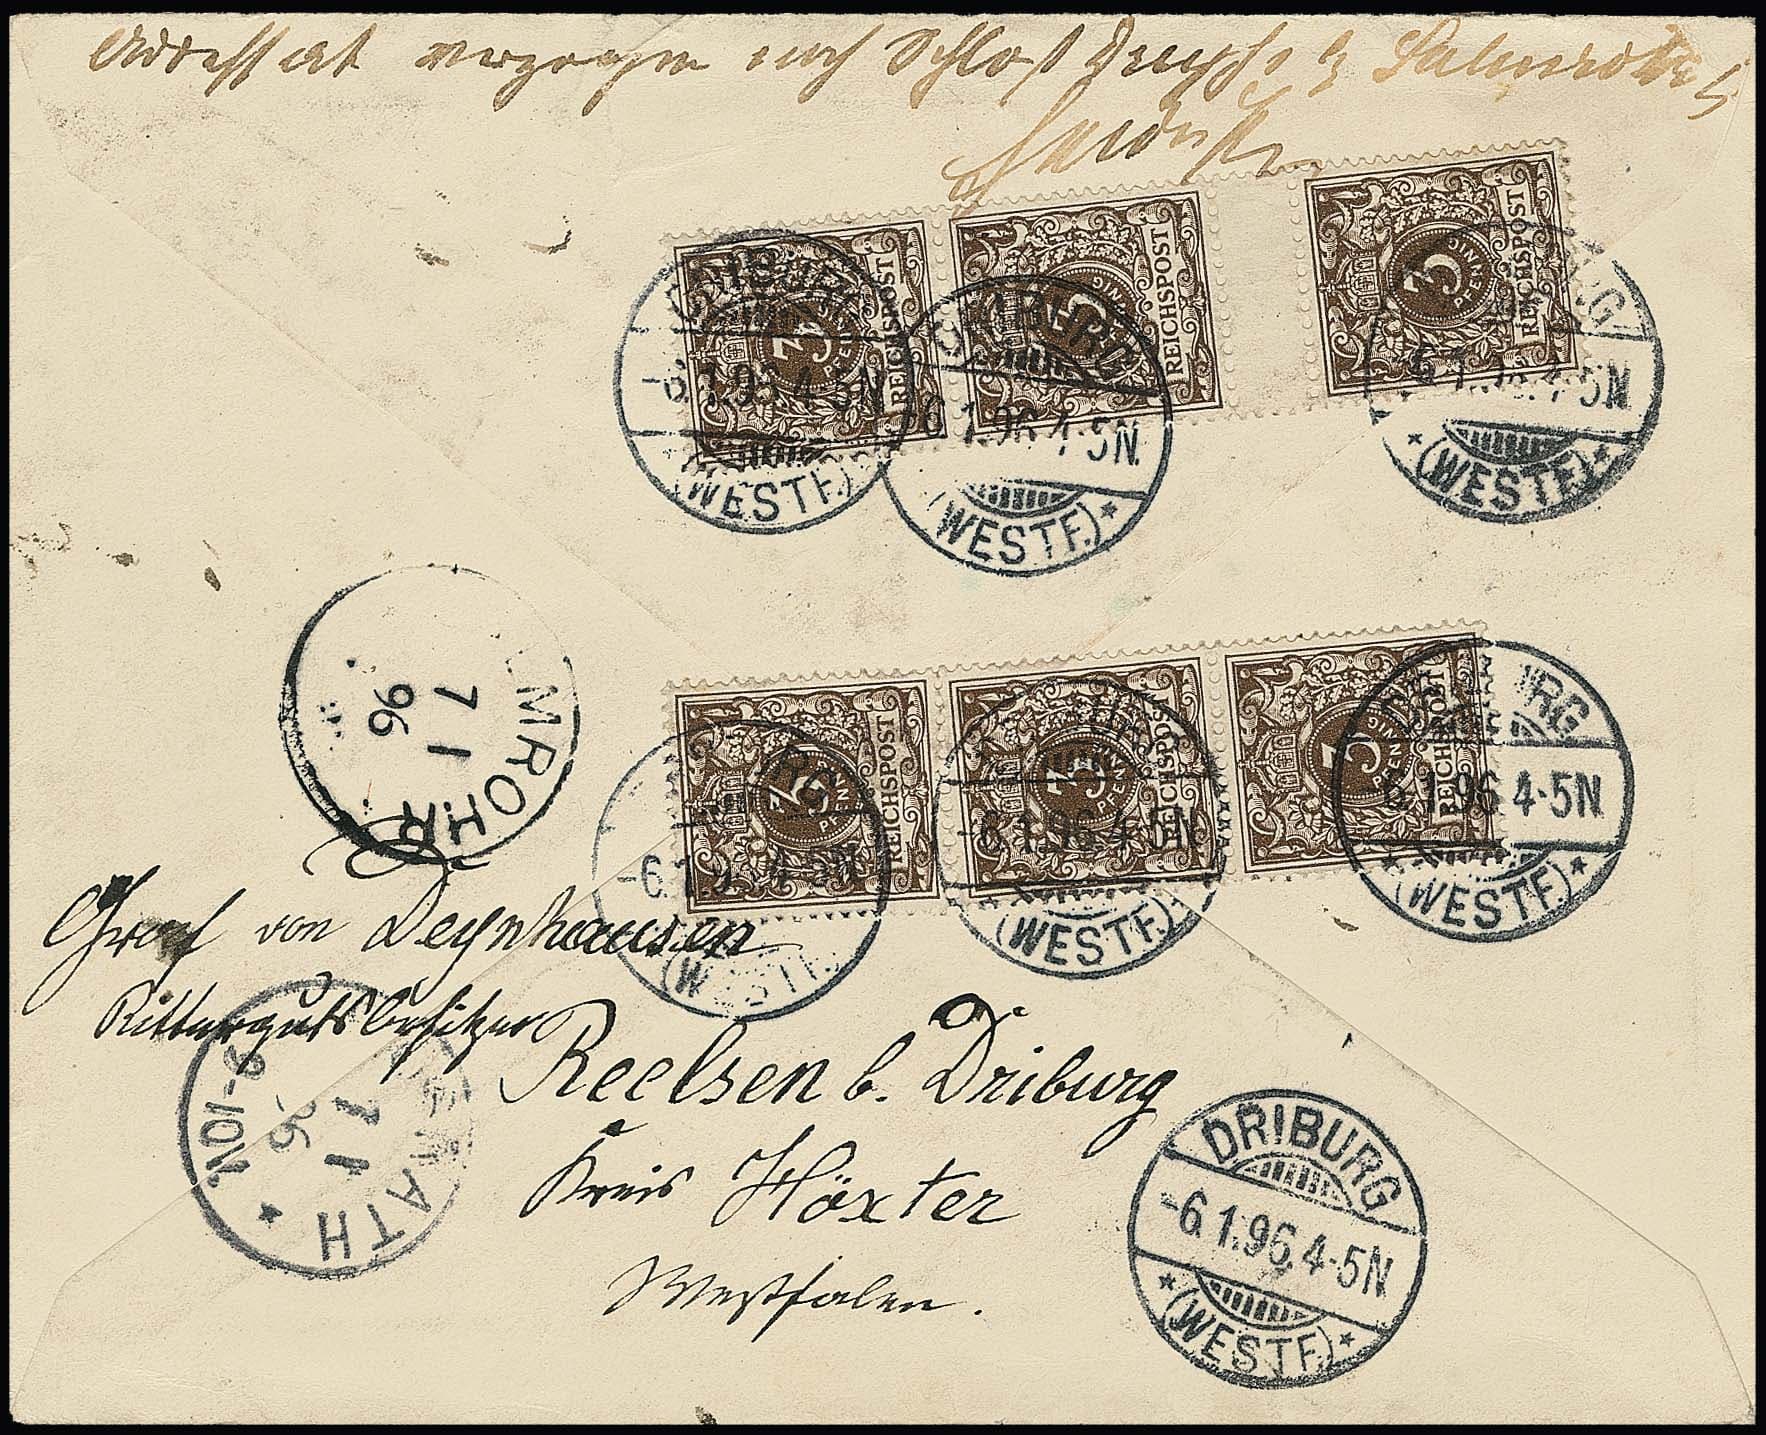 Adressat verzogen nach Schloß
3 PFENNIG REICHSPOST
3 PFENNIG REICHSPOST
3 PFENNIG REICHSPOST
DRIBURG
-6.1.96.4-5N
(WESTF.)
DRIBURG
-6.1.96.4-5N
(WESTF.)
DRIBURG
-6.1.96.4-5N
(WESTF.)
3 PFENNIG REICHSPOST
3 PFENNIG REICHSPOST
3 PFENNIG REICHSPOST
DRIBURG
-6.1.96.4-5N
(WESTF.)
DRIBURG
-6.1.96.4-5N
(WESTF.)
DRIBURG
-6.1.96.4-5N
(WESTF.)
LMROHR
7 1
96
Graf von Oeynhausen
Rittergutsbesitzer
Reelsen b. Driburg
Kreis Höxter
Westfalen.
RATH
7 1
96
9-10V
DRIBURG
-6.1.96.4-5N
(WESTF.)